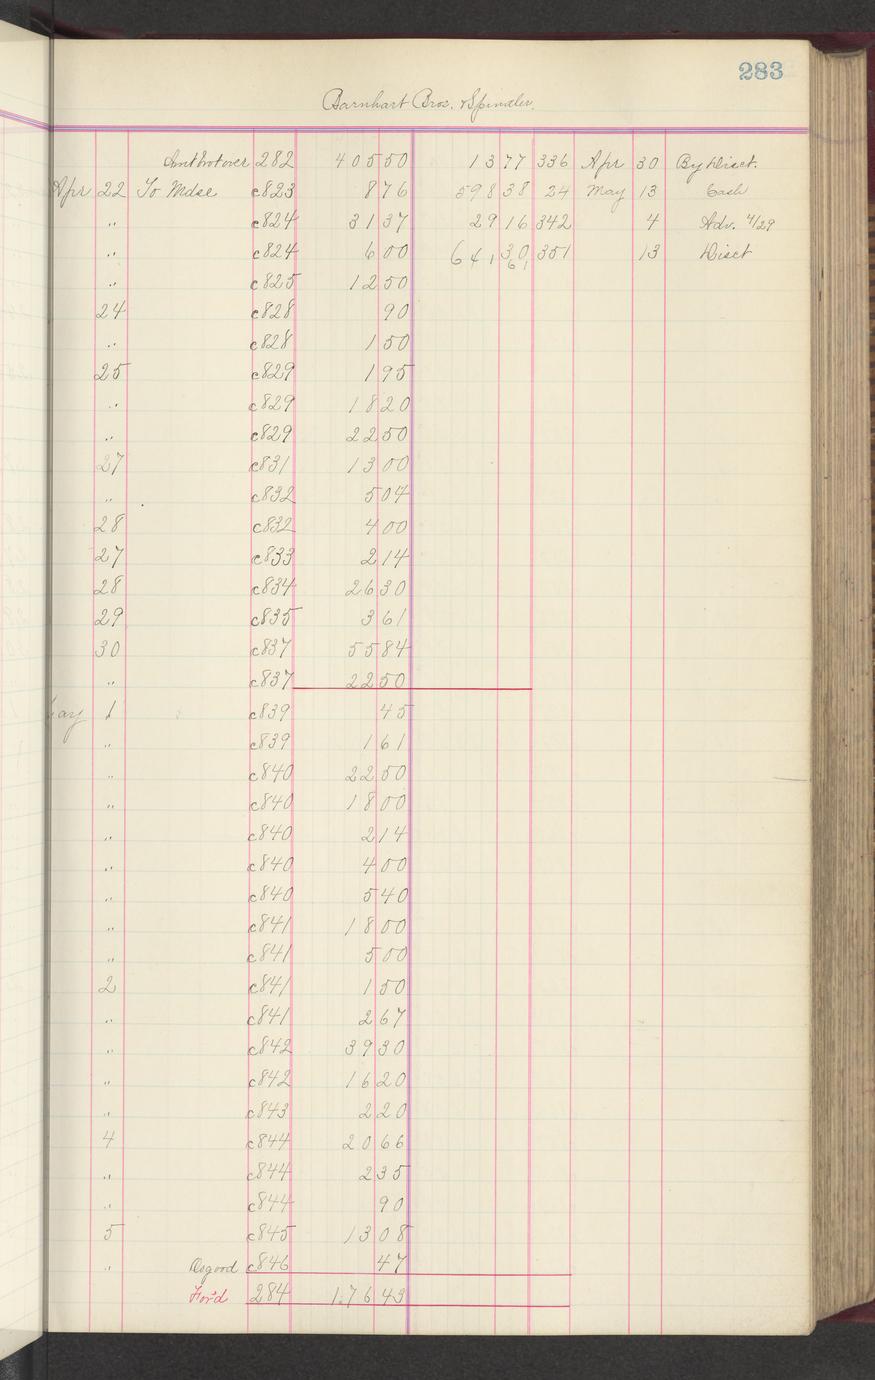 283
Barnhart Bros. & Spindler.
Amt brot over 282 405 50 13 77 336 Apr 30 By Disct.
Apr 22 To Mdse c823 8 76 598 38 24 May 13 Cash
" c824 31 37 29 16 342 4 Adv. 4/29
" c824 6 00 641 30 351 13 Disct
61
" c825 12 50
24 c828 90
" c828 1 50
25 c829 1 95
" c829 18 20
" c829 22 50
27 c831 13 00
" c832 5 04
28 c832 4 00
27 c833 2 14
28 c834 26 30
29 c835 3 61
30 c837 55 84
" c837 22 50
May 1 c839 45
" c839 1 61
" c840 22 50
" c840 18 00
" c840 2 14
" c840 4 00
" c840 5 40
" c841 18 00
" c841 5 00
2 c841 1 50
" c841 2 67
" c842 39 30
" c842 16 20
" c843 2 20
4 c844 20 66
" c844 2 35
" c844 90
5 c845 13 08
" Osgood c846 47
For'd 284 176 43